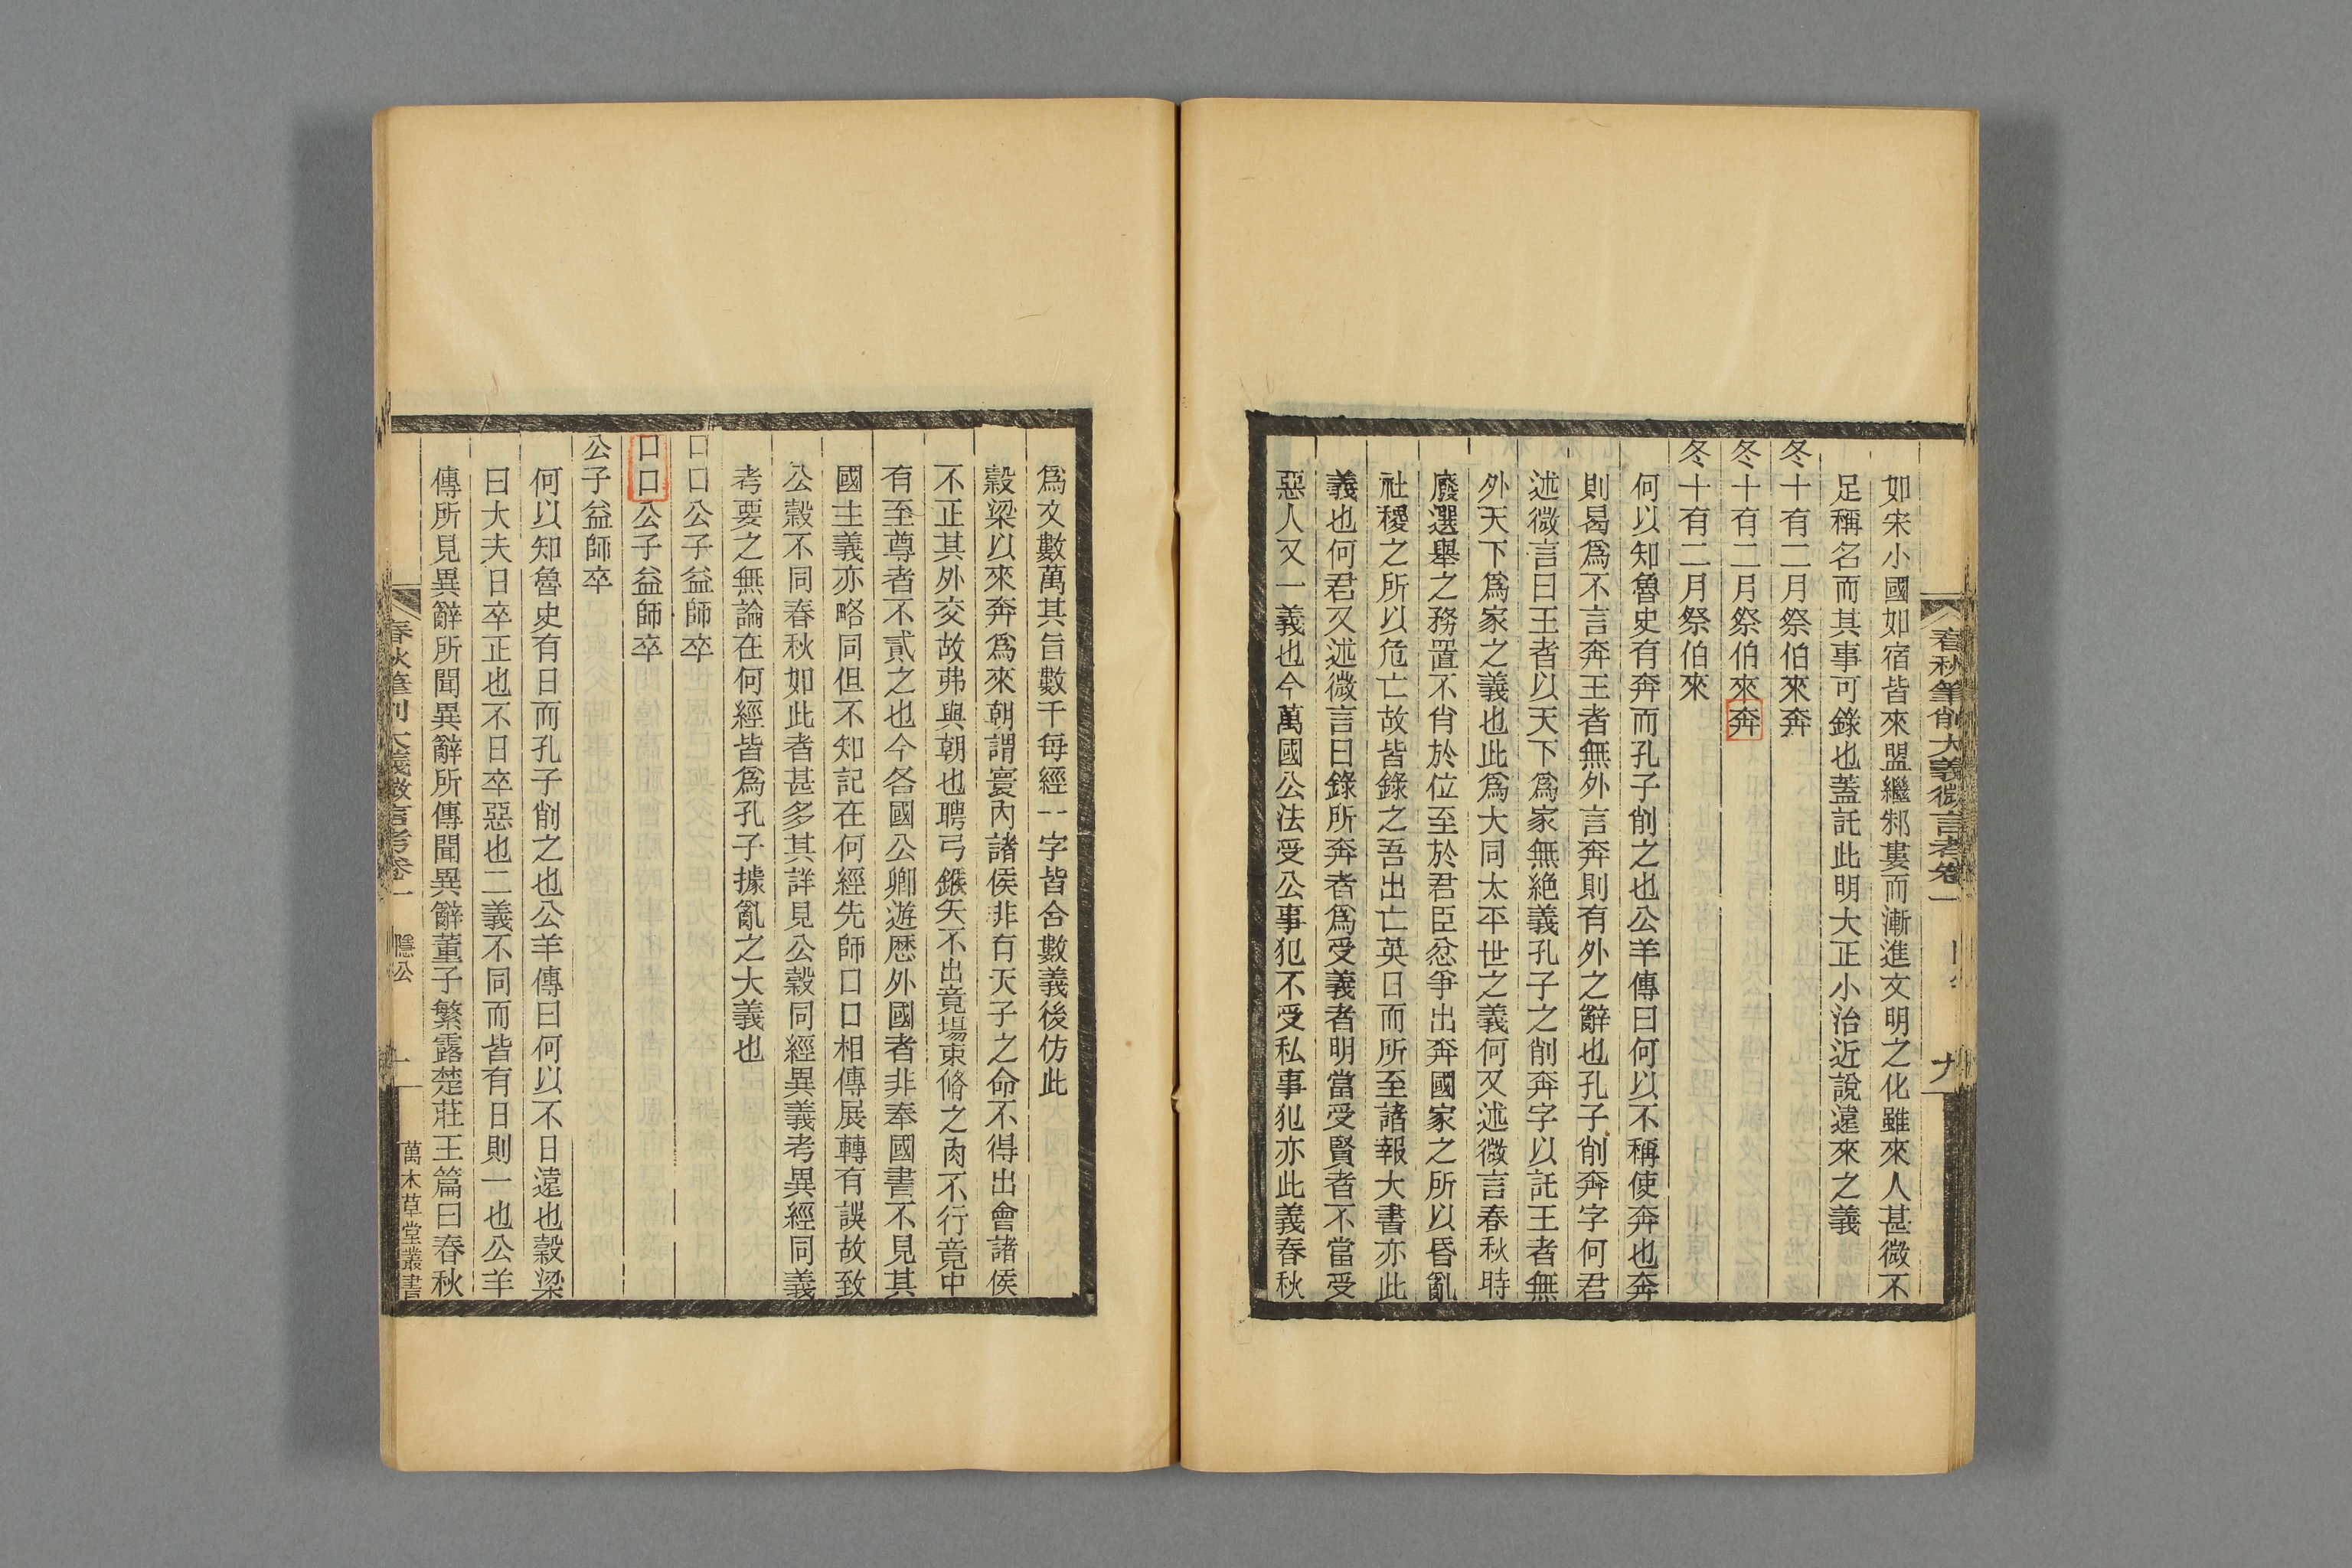 春秋筆削大義微言考卷一
九
如宋小國如宿皆來盟繼邾婁而漸進文明之化雖來人甚微不
足稱名而其事可錄也蓋託此明大正小治近說遠來之義
冬十有二月祭伯來奔
冬十有二月祭伯來奔
冬十有二月祭伯來
何以知魯史有奔而孔子削之也公羊傳曰何以不稱使奔也奔
則曷爲不言奔王者無外言奔則有外之辭也孔子削奔字何君
述微言曰王者以天下爲家無絶義孔子之削奔字以託王者無
外天下爲家之義也此爲大同太平世之義何又述微言春秋時
廢選舉之務置不肖於位至於君臣忿爭出奔國家之所以昏亂
社稷之所以危亡故皆錄之吾出亡英日而所至諸報大書亦此
義也何君又述微言曰錄所奔者爲受義者明當受賢者不當受
惡人又一義也今萬國公法受公事犯不受私事犯亦此義春秋
爲文數萬其旨數千每經一字皆含數義後仿此
穀梁以來奔爲來朝謂寰內諸侯非有天子之命不得出會諸侯
不正其外交故弗與朝也聘弓鍭矢不出竟場束脩之肉不行竟中
有至尊者不貳之也今各國公卿遊歷外國者非奉國書不見其
國主義亦略同但不知記在何經先師口口相傳展轉有誤故致
公穀不同春秋如此者甚多其詳見公穀同經異義考異經同義
考要之無論在何經皆爲孔子據亂之大義也
口口公子益師卒
口口公子益師卒
公子益師卒
何以知魯史有日而孔子削之也公羊傳曰何以不日遠也穀梁
曰大夫日卒正也不日卒惡也二義不同而皆有日則一也公羊
傳所見異辭所聞異辭所傳聞異辭董子繁露楚莊王篇曰春秋
春秋筆削大義微言考卷一
隱公
萬木草堂叢書